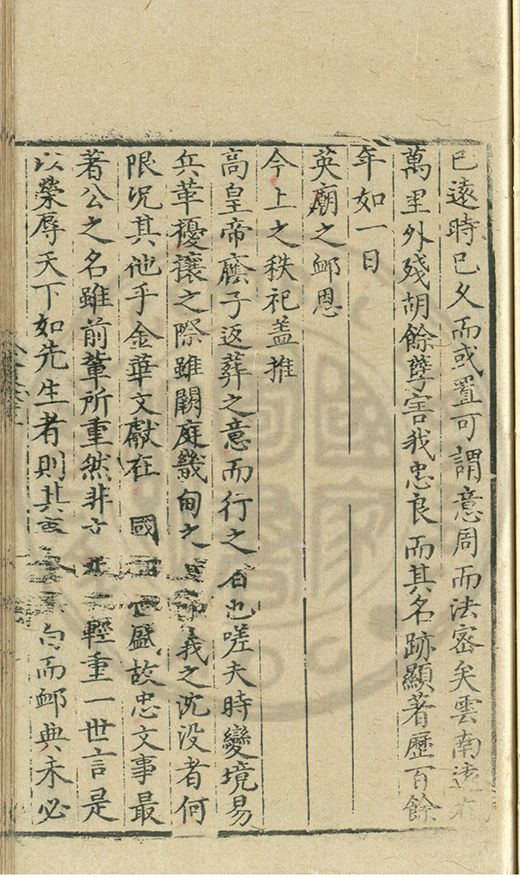 已遠時已久而或置可謂意周而法密矣雲南遠在
萬里外殘胡餘孽害我忠良而其名跡顯著歷百餘
年如一日
英廟之卹恩
今上之秩祀盖推
高皇帝廕子返葬之意而行之者也嗟夫時變境易
兵革擾攘之際雖闕庭畿甸之義之沈没者何
限况其他乎金華文獻在國盛故忠文事最
著公之名雖前輩所重然非輕重一世言是
以榮辱天下如先生者則其而卹典未必